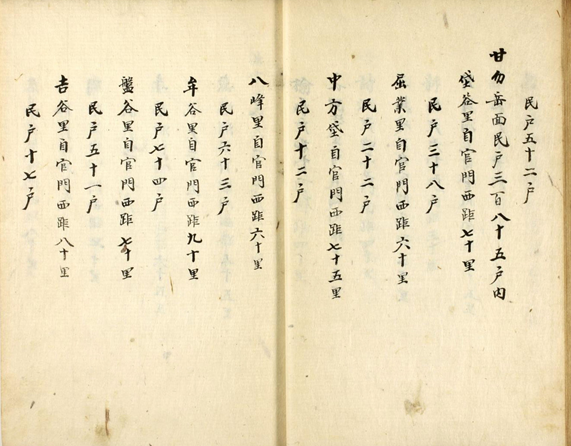 民戶五十二戶
甘勿岳面民戶三百八十五戶內
垈谷里自官門西距七十里
民戶三十八戶
屈業里自官門西距六十里
民戶二十二戶
中方垈自官門西距七十五里
民戶十二戶
八峰里自官門西距六十里
民戶六十三戶
牟谷里自官門西距九十里
民戶七十四戶
盤谷里自官門西距七十里
民戶五十一戶
吉谷里自官門西距八十里
民戶十七戶